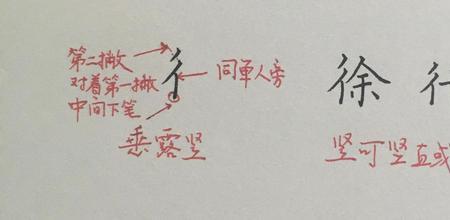 第二撇
对着第一撇
中间下笔
彳
同单人旁
悉露竖
徐
竖可竖直或